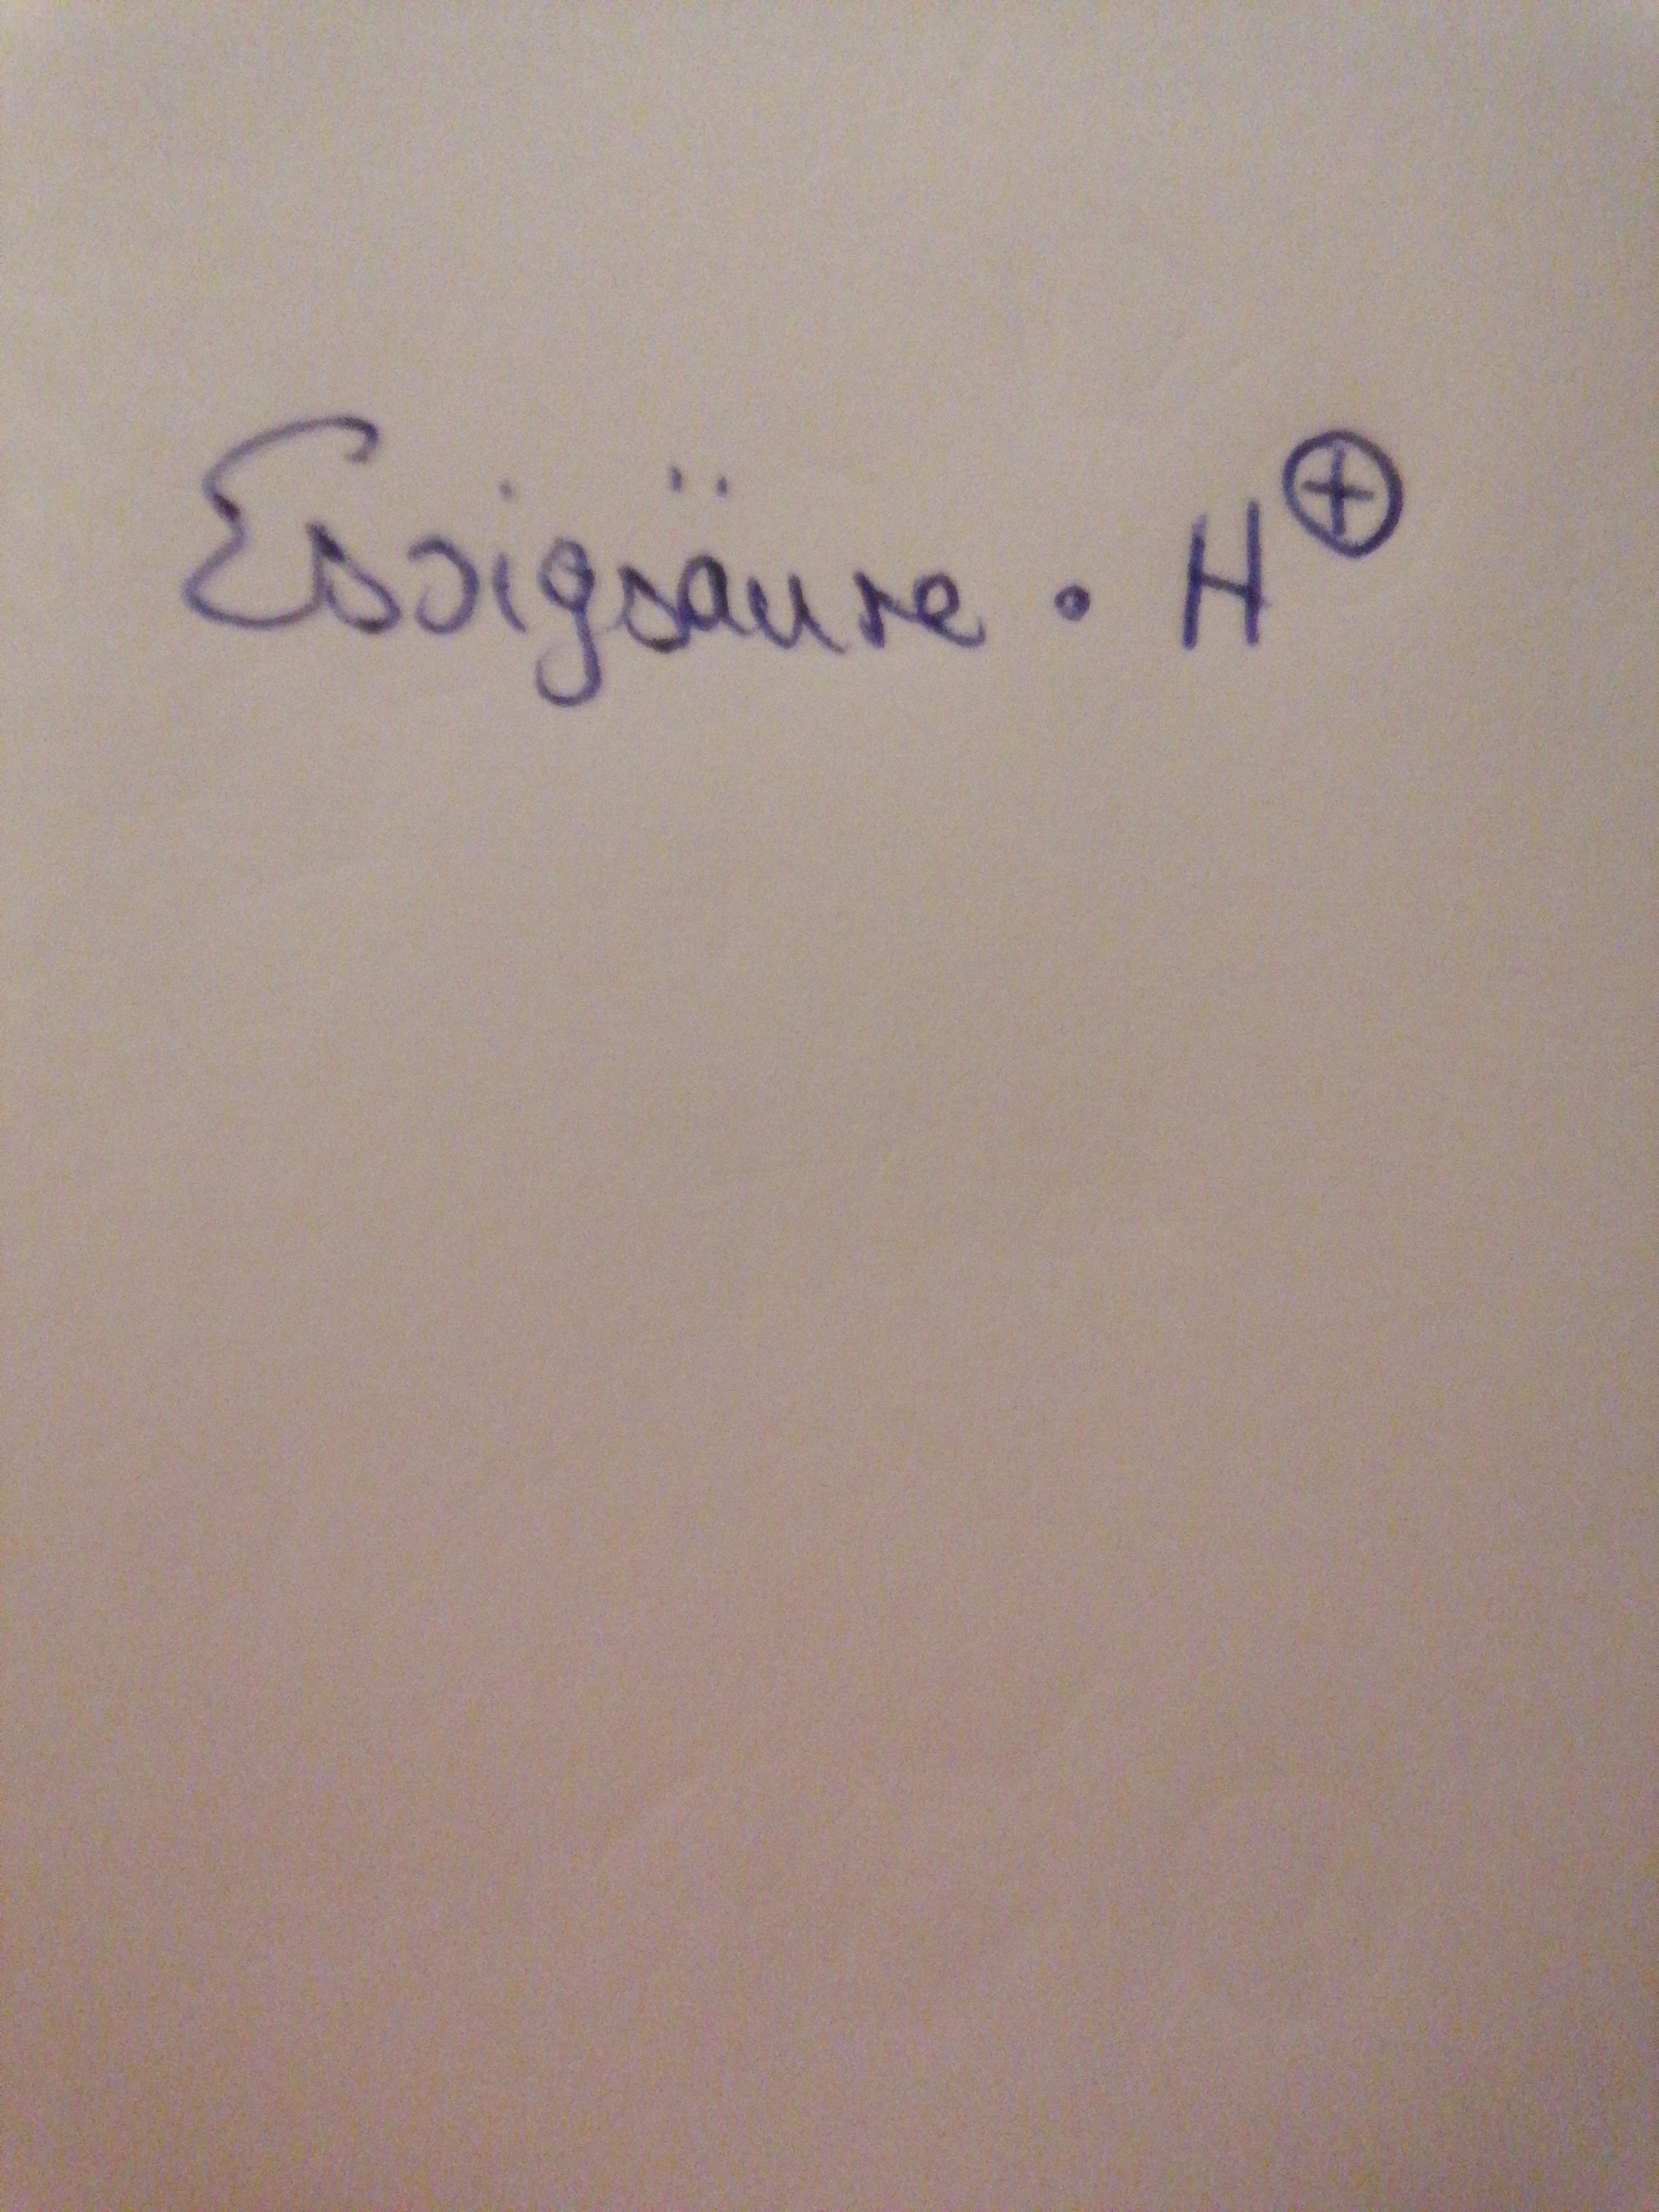 Essigsäure · H⊕